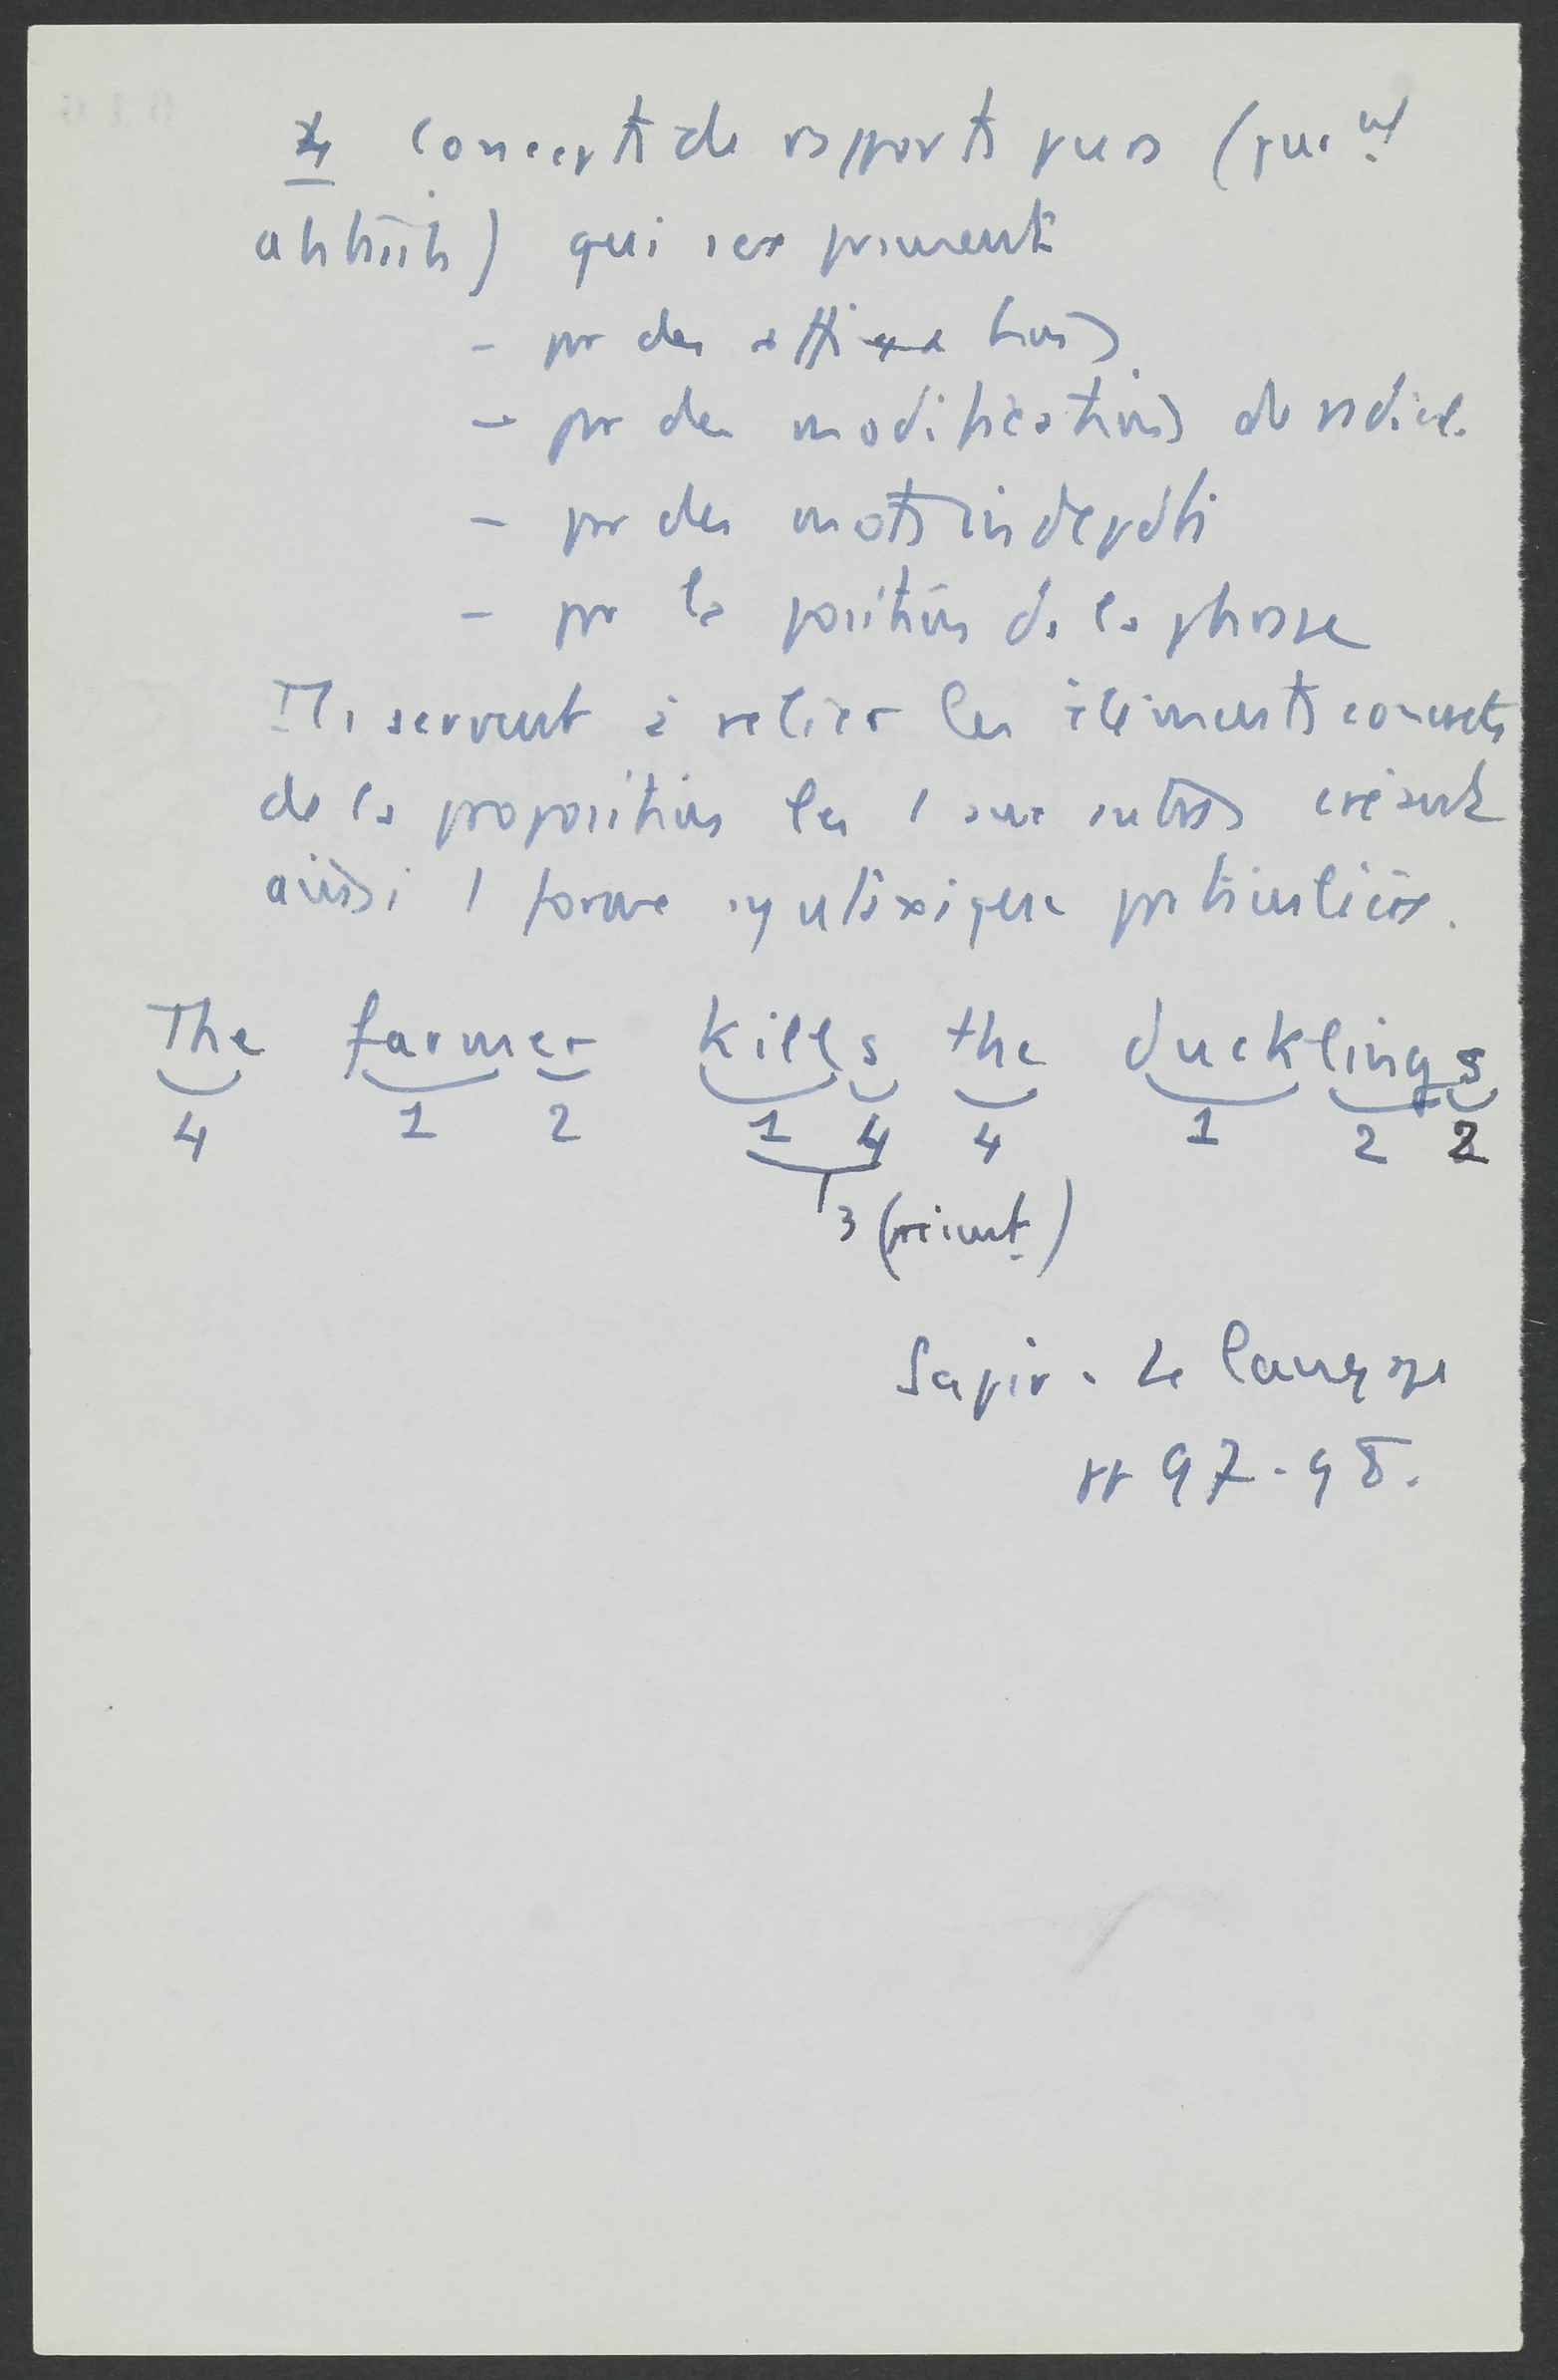 4 concepts de rapports purs (pure^nt
abstraits) qui s'expriment
- par des affixations
- par des modifications de radical
- par des mots indépdts
- par la position ds la phrase
Ils servent à relier les éléments concrets
de la proposition les 1 aux autres créant
ainsi 1 forme syntaxique particulière.
The farmer kills the ducklings
4 1 2 1 4 4 1 2 2
3
Sapir. Le langage
pp 97-98.